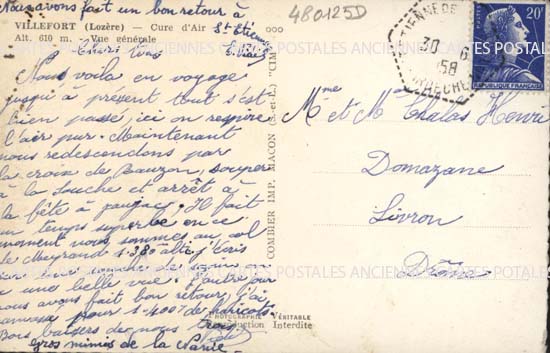 Nous avons fait un bon retour à
480125D
VILLEFORT (Lozère) — Cure d'Air
St Etienne
Alt. 610 m. - Vue générale
ooo
Chers tous
Nous voila en voyage
jusqu'à présent tout s'est
bien passé, ici on respire
l'air pur. Maintenant
nous redescendons par
la croix de Bauzon, souper
à la souche et arrêt à
la bête à
Il fait
un temps superbe en ce
moment nous sommes au col
de Meyrand
alti
une belle vue. L'autre jour
nous avons fait bon retour, j'ai
ramassé pour
de haricots.
Bons baisers de nous trois
gros mimis de la
COMBIER IMP. MACON (S.-et-L.) "CIM"
PHOTOGRAPHIE VÉRITABLE
Reproduction Interdite
ETIENNE DE
30 6
58
ARDECHE
20F
RÉPUBLIQUE FRANÇAISE
Mme et M Chalas Henri
Domazane
Livron
Drôme
CARTES POSTALES ANCIENNES CARTES POSTALES ANCIENNES